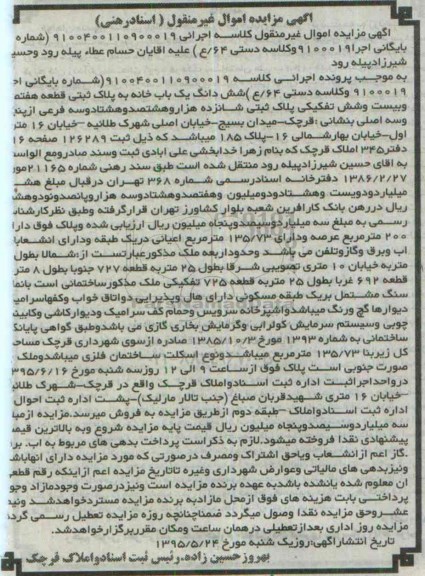 آگهی مزایده اموال غیرمنقول ( اسنادرهنی)
آگهی مزایده اموال غیرمنقول کلاسه اجرائی ۹۱۰۰۴۰۰۱۱۰۹۰۰۰۰۱۹ (شماره
بایگانی اجرا۹۱۰۰۰۱۹وکلاسه دستی ۶۴/ع) علیه آقایان حسام عطاء پیله رود وحسین
شیرزادپیله رود
به موجب پرونده اجرائی کلاسه ۹۱۰۰۴۰۰۱۱۰۹۰۰۰۰۱۹(شماره بایگانی
۹۱۰۰۰۱۹ وکلاسه دستی ۶۴/ع )شش دانگ یک باب خانه به پلاک ثبتی قطعه هفتم
وبیست وشش تفکیکی پلاک ثبتی شانزده هزاروهشتصدوهشتادوسه فرعی
وسه اصلی بنشانی :قرچک-میدان بسیج-خیابان اصلی شهرک طلائیه -خیابان ۱۶
اول-خیابان بهارشمالی ۱۶-پلاک ۱۸۵ میباشدکه ذیل ثبت ۱۲۶۲۸۹ صفحه
دفتر۳۴۵ املاک قرچک که بنام زهرا خدابخشی علی آبادی ثبت وسند صادرومع الواسطه
به آقای حسین شیرزادپیله رود منتقل شده است طبق سند رهنی شماره ۲۱۱۶۵
۱۳۸۶/۲/۲۷ دفترخانه اسنادرسمی شماره ۳۶۸ تهران درقبال مبلغ
میلیاردودویست وهشتادودومیلیون وهفتصدوهشتادوسه هزاروپانصدونودوهشت
ریال دررهن بانک کارآفرین شعبه بلوار کشاورز تهران قرارگرفته وطبق نظرکارشناس
رسمی به مبلغ سه میلیاردوسیصدوپنجاه میلیون ریال ارزیابی شده وپلاک فوق
۲۰۰ مترمربع عرصه ودارای ۱۳۵/۷۳ مترمربع اعیانی دریک طبقه ودارای انشعابات
آب وبرق وگازوتلفن می باشد وحدوداربعه ملک مذکورعبارتست از:شمالا بطول
متربه خیابان ۱۰ متری تصویبی شرقا بطول ۲۵ متربه قطعه ۷۲۷ جنوبا بطول ۸
قطعه ۶۹۲ غربا بطول ۲۵ متربه قطعه ۷۲۵ تفکیکی ملک مذکورساختمانی است
سنگ مشتمل بریک طبقه مسکونی دارای هال وپذیرایی دواتاق خواب وکفهاسرامیک
دیوارها گچ ورنگ میباشدوآشپزخانه سرویس وحمام کف سرامیک ودیوارکاشی وکابینت
چوبی وسیستم سرمایش کولرآبی وگرمایش بخاری گازی می باشدوطبق گواهی
ساختمانی به شماره ۱۳۹۳ مورخ ۱۳۸۵/۱۰/۳ صادره ازسوی شهرداری قرچک
کل زیربنا ۱۳۵/۷۳ مترمربع میباشدونوع اسکلت ساختمان فلزی میباشدوملک
صورت جنوبی است پلاک فوق ازساعت ۹ الی ۱۲ روزسه شنبه مورخ ۱۳۹۵/۶/۱۶
درواحداجرائبت اداره ثبت اسنادواملاک قرچک واقع در قرچک-شهرک طلائیه
-خیابان ۱۶ متری شهیدقربان صباغ (جنب تالار مارلیک)-پشت اداره ثبت احوال
اداره ثبت اسنادواملاک -طبقه دوم ازطریق مزایده به فروش میرسد.مزایده ازمبلغ
سه میلیاردوسیصدوپنجاه میلیون ریال قیمت پایه مزایده شروع وبه بالاترین قیمت
پیشنهادی نقدا فروخته میشود.لازم به ذکراست پرداخت بدهی های مربوط به آب.
.گاز اعم ازانشعاب وباحق اشتراک ومصرف درصورتی که مورد مزایده دارای آنهاباشد
ونیزبدهی های مالیاتی وعوارض شهرداری وغیره تاتاریخ مزایده اعم ازاینکه رقم قطعی
آن معلوم شده یانشده باشدبه عهده برنده مزایده است ونیزدرصورت وجودمازاد وجوه
پرداختی بابت هزینه های فوق ازمحل مازادبه برنده مزایده مستردخواهدشد
عشروحق مزایده نقدا وصول میگردد ضمناچنانچه روزه مزایده تعطیل رسمی گردد
مزایده روز اداری بعدازتعطیلی درهمان ساعت ومکان مقرربرگزارخواهدشد.
تاریخ انتشارآگهی:روزیک شنبه مورخ ۱۳۹۵/۵/۲۴
بهروزحسین زاده.رئیس ثبت اسنادواملاک قرچک